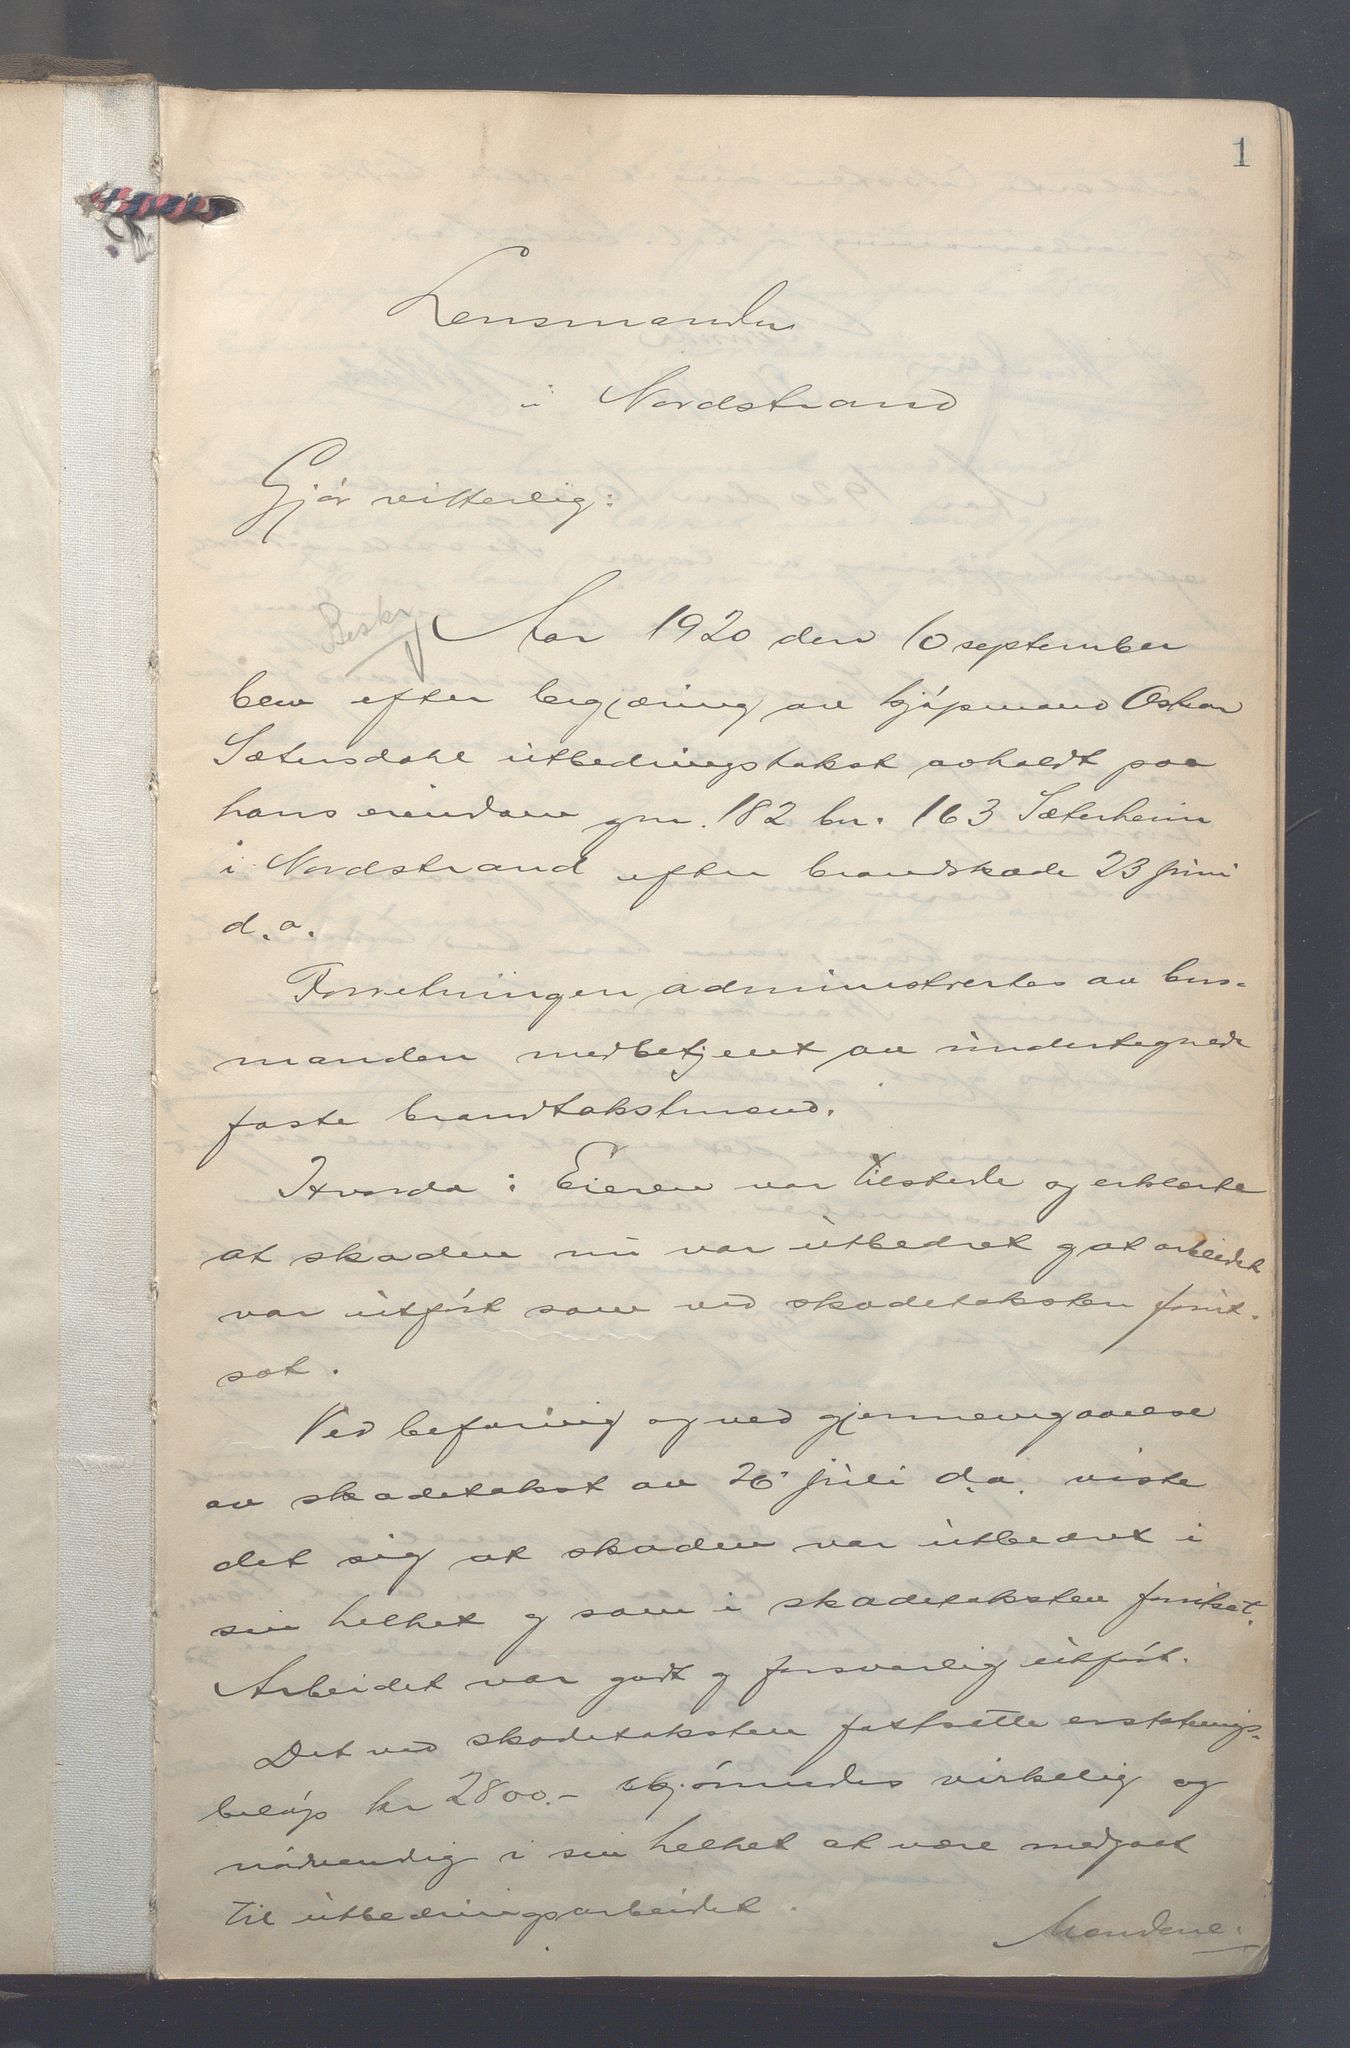 1
Lensmanden
i Nordstrand
Gjør vitterlig:
Beskr
Aar 1920 den 10 september
blev efter begjæring av kjøpmand Oskar
Sætersdahl utbedringstakst avholdt paa
hans eiendom gnr. 182 bn. 163 Sæterheim
i Nordstrand efter brandskade 23 juni
d.a.
Forretningen administrertes av lens-
manden medbetjent av undertegnede
faste brandtakstmend.
Hvorda: Eieren var tilstede og erklærte
at skaden nu var utbedret og at arbeidet
var utført som ved skadetaksten forut-
sat.
Ved befaring og ved gjennemgaaelse
av skadetakst av 26' juli d.a. viste
det sig at skaden var utbedret i
sin helhet og som i skadetaksten forutsat.
Arbeidet var godt og forsvarlig utført.
Det ved skadetaksten fastsatte erstatnings-
beløp kr 2800.- skjønnedes virkelig og
nødvendig i sin helhet at være medgaat
til utbedringsarbeidet.
Mændene: